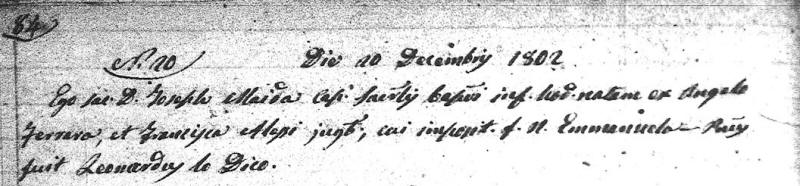 84
N. 20 Die 20 Decembris 1802
Ego sac. D. Joseph Maida Cap. Sacr. bapt. inf. hod. natam ex Angelo
Ferrara, et Francisca Alessi jugt., cui imposit. f. N. Emmanuela
fuit Leonardus lo Dico.